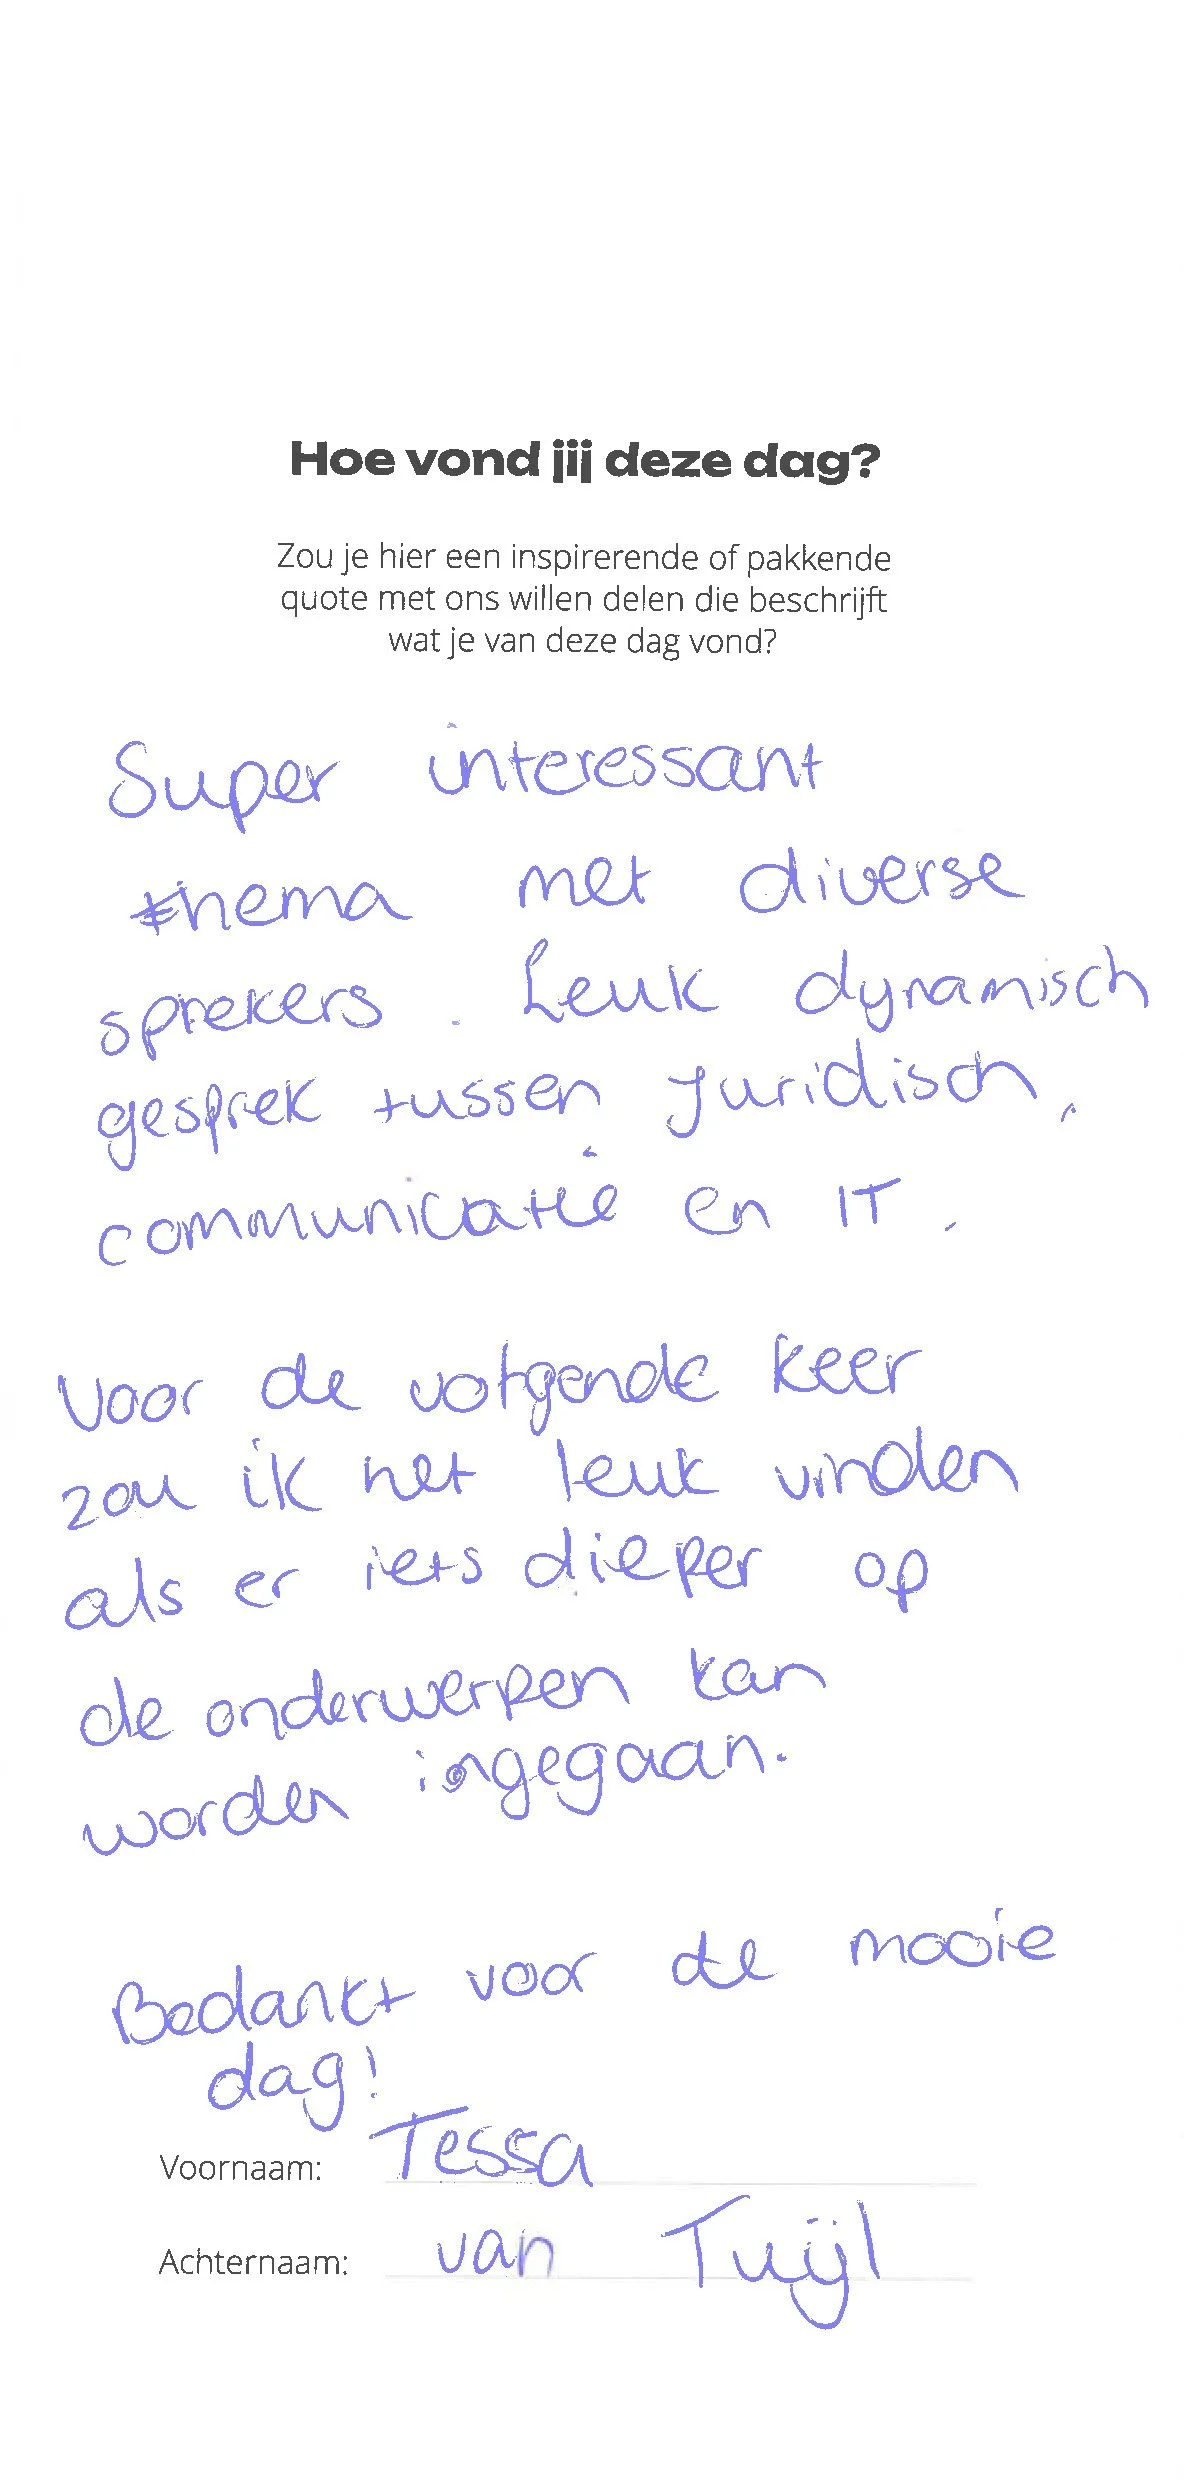 Hoe vond jij deze dag?
Zou je hier een inspirerende of pakkende
quote met ons willen delen die beschrijft
wat je van deze dag vond?
Super interessant
thema met diverse
sprekers. Leuk dynamisch
gesprek tussen juridisch,
communicatie en IT.
Voor de volgende keer
zou ik het leuk vinden
als er iets dieper op
de onderwerpen kan
worden ingegaan.
Bedankt voor de mooie
dag!
Voornaam: Tessa
Achternaam: van Tuijl